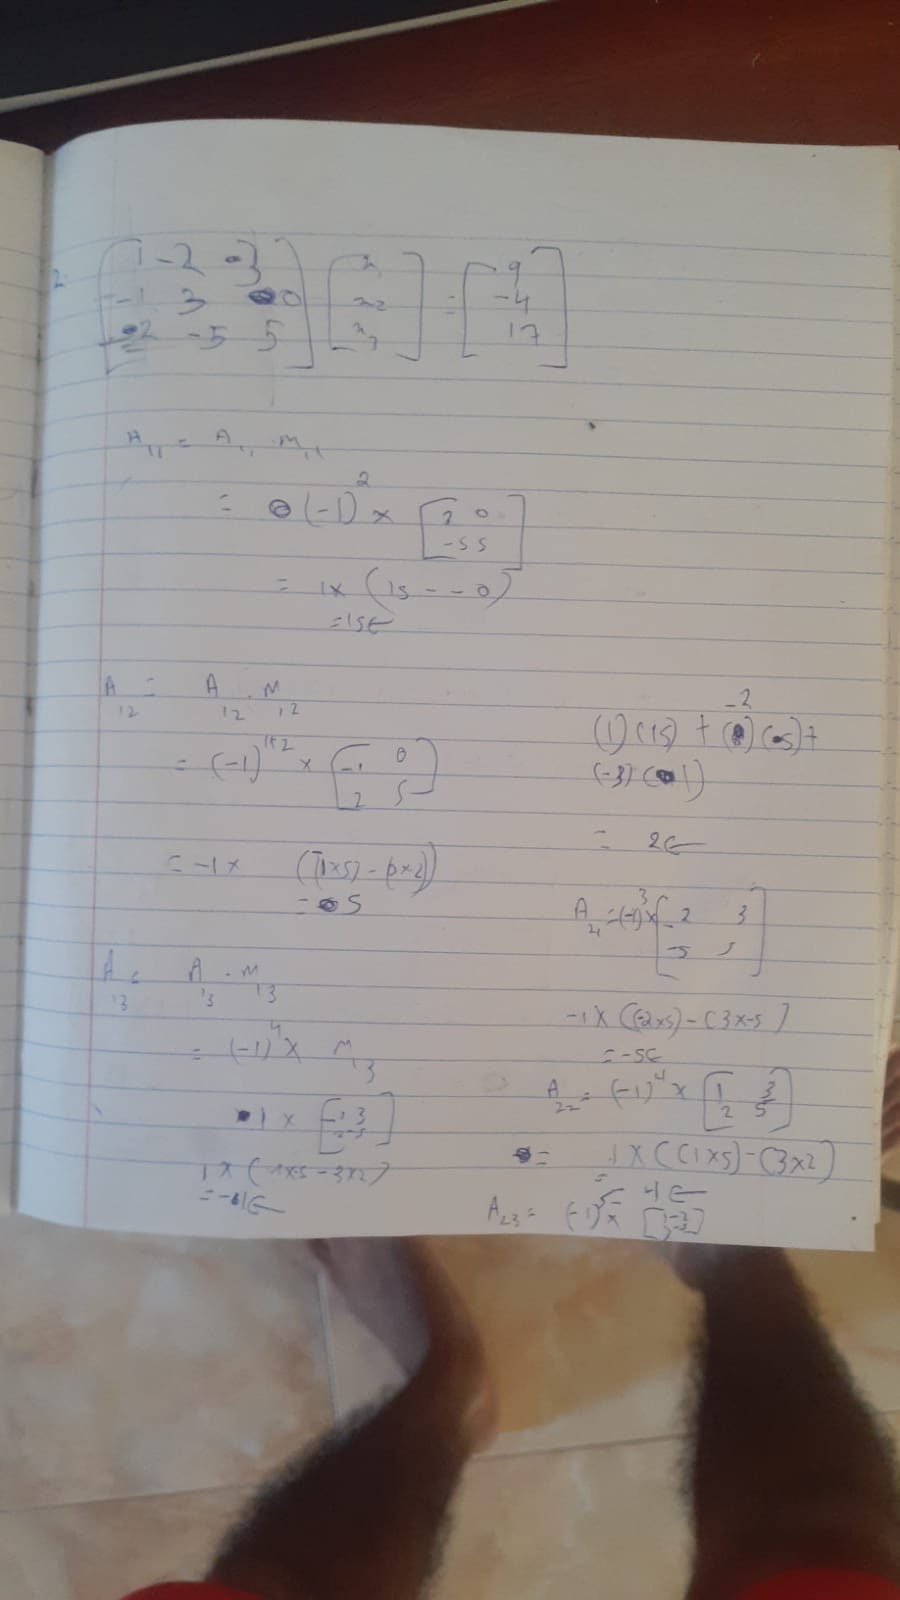 2.
[1 -2 -3] [x1] = [9]
[-1 3 0] [x2] [-4]
[2 -5 5] [x3] [17]
A11 = A11 . M11
= (-1)^2 × [3 0]
[-5 5]
= 1× (15 - -0)
= 15
A12 = A12 . M12
= (-1)^1+2 × [-1 0]
[2 5]
= -1 × ((-1×5) - (0×2))
= 5
A13 = A13 . M13
= (-1)^4 × M13
1 × [-1 3]
[2 -5]
1 × (-1×-5 - 3×2)
= -1
(1)(15) + (-2)(5) +
(-3)(-1)
= 2
A21 = (-1)^3 × [-2 3]
[-5 5]
-1 × ((-2×5) - (3×-5)
= -5
A22 = (-1)^4 × [1 3]
[2 5]
= 1 × ((1×5) - (3×2)
=
A23 = (-1)^5 × [1 -2]